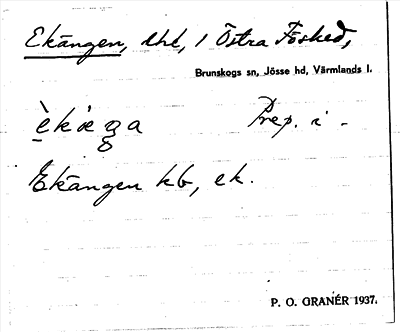 Ekängen, lht, i Östra Fösked,
Brunskogs sn, Jösse hd, Värmlands l.
Prep. i -
Ekängen kb, ek.
P. O. GRANÉR 1937.